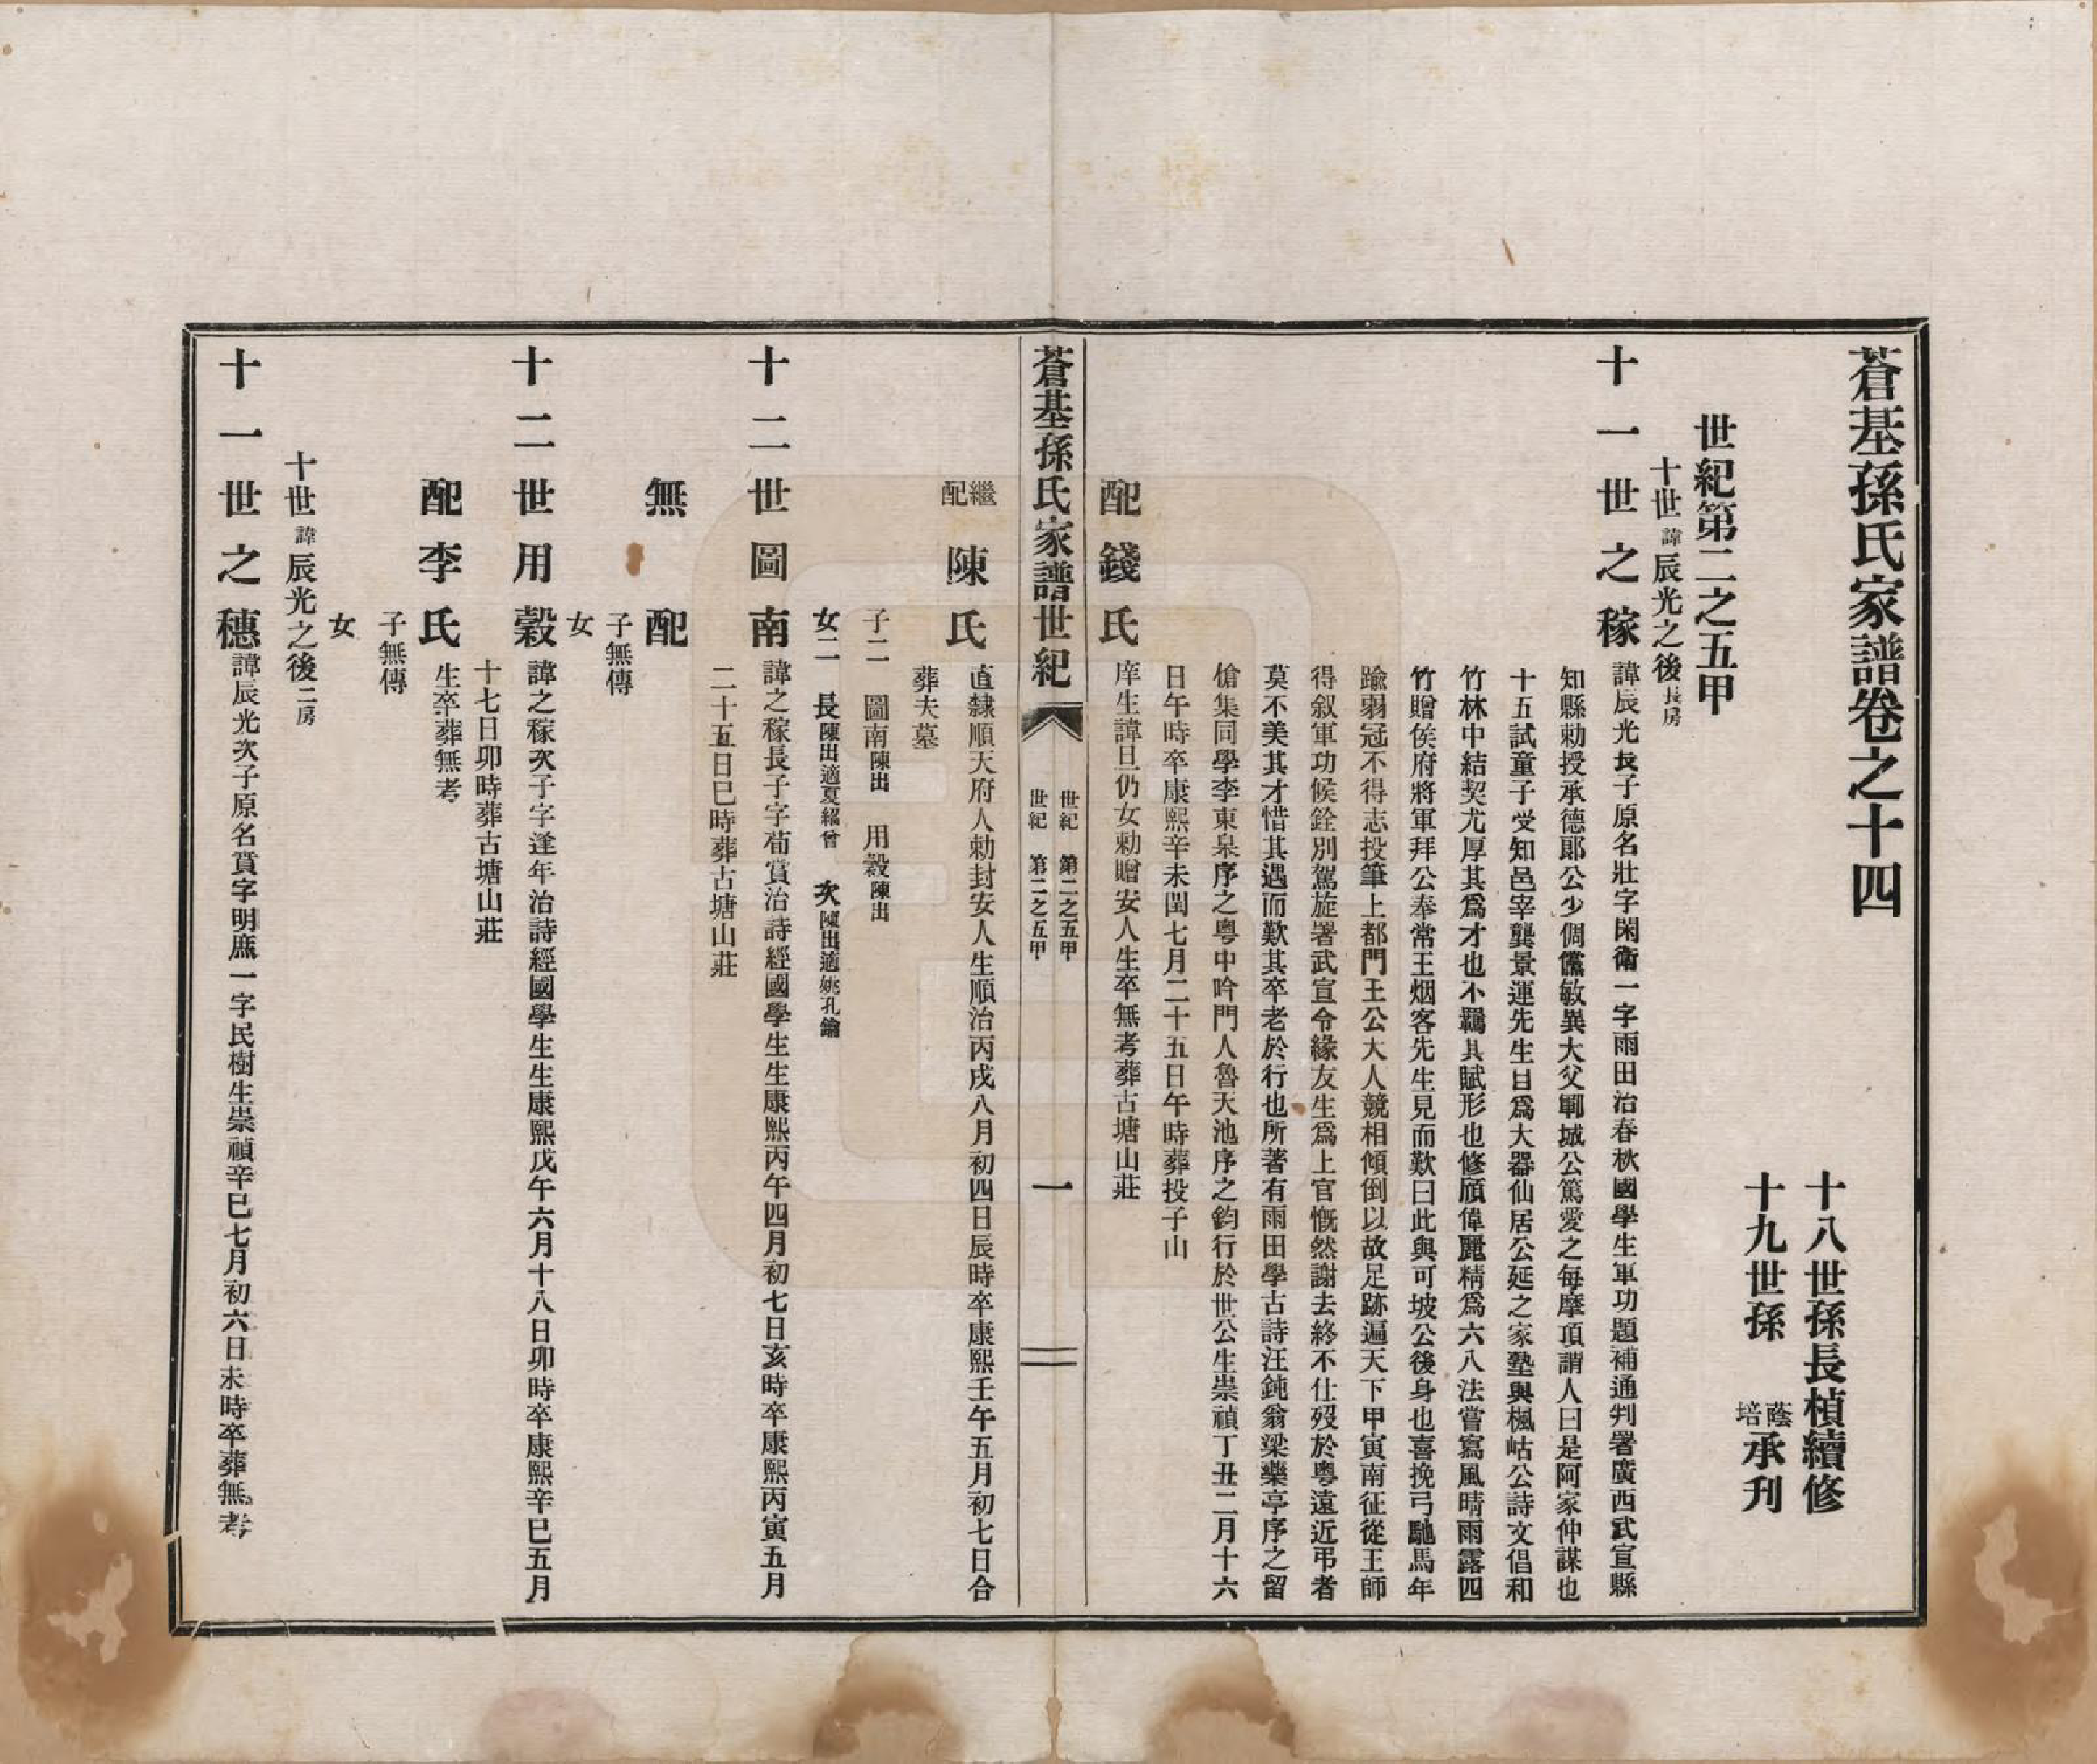 蒼基孫氏家譜卷之十四
十八世孫長楨續修
十九世孫蔭培承刊
世紀第二之五甲
十世諱辰光之後長房
十一世之稼諱辰光長子原名壯字閑衛一字雨田治春秋國學生軍功題補通判署廣西武宣縣
知縣勅授承德郎公少倜儻敏異大父鄆城公篤愛之每摩頂謂人曰是阿家仲謀也
十五試童子受知邑宰龔景運先生目爲大器仙居公延之家塾與楓岵公詩文倡和
竹林中結契尤厚其爲才也不羈其賦形也修頎偉麗精爲六八法嘗寫風晴雨露四
竹贈侯府將軍拜公奉常王烟客先生見而歎曰此與可坡公後身也喜挽弓馳馬年
踰弱冠不得志投筆上都門王公大人競相傾倒以故足跡遍天下甲寅南征從王師
得叙軍功候銓別駕旋署武宣令緣友生爲上官慨然謝去終不仕歿於粵遠近弔者
莫不美其才惜其遇而歎其卒老於行也所著有雨田學古詩汪鈍翁梁藥亭序之留
傖集同學李東臯序之粵中吟門人魯天池序之鈞行於世公生崇禎丁丑二月十六
日午時卒康熙辛未閏七月二十五日午時葬投子山
配錢氏庠生諱旦仍女勅贈安人生卒無考葬古塘山莊
蒼基孫氏家譜世紀
世紀 第二之五甲
世紀 第二之五甲
一
繼配陳氏直隸順天府人勅封安人生順治丙戌八月初四日辰時卒康熙壬午五月初七日合
葬夫墓
子二 圖南陳出 用穀陳出
女二 長陳出適夏紹曾 次陳出適姚孔鑰
十二世圖南諱之稼長子字荀賞治詩經國學生生康熙丙午四月初七日亥時卒康熙丙寅五月
二十五日巳時葬古塘山莊
無配
子無傳
女
十二世用穀諱之稼次子字逢年治詩經國學生生康熙戊午六月十八日卯時卒康熙辛巳五月
十七日卯時葬古塘山莊
配李氏生卒葬無考
子無傳
女
十世諱辰光之後二房
十一世之穗諱辰光次子原名賁字明庶一字民樹生崇禎辛巳七月初六日未時卒葬無考